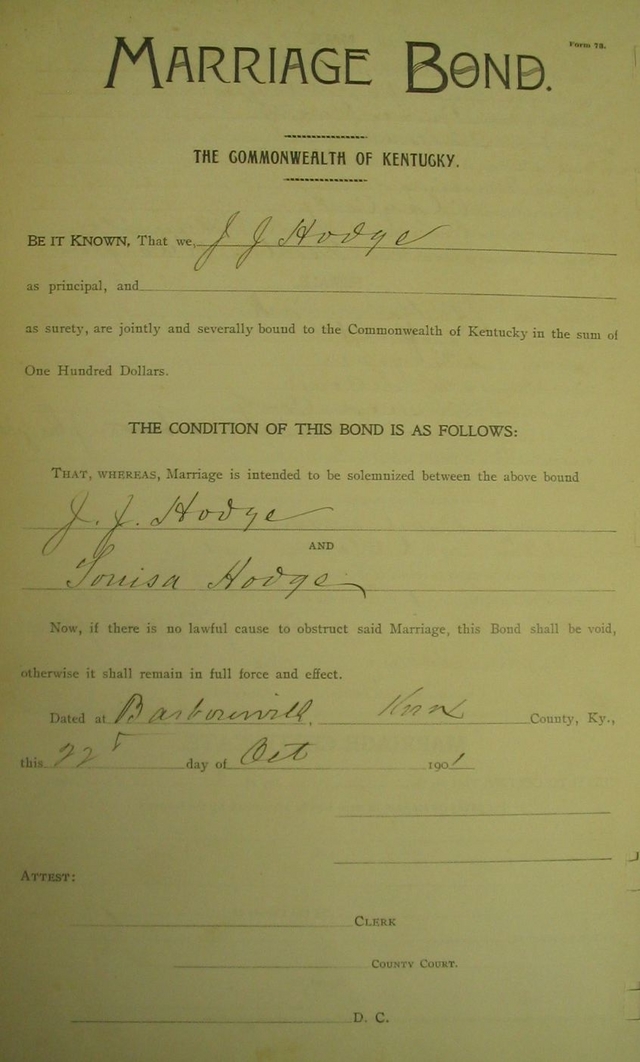 Form 78.
MARRIAGE BOND.
THE COMMONWEALTH OF KENTUCKY.
BE IT KNOWN, That we, J J Hodge
as principal, and
as surety, are jointly and severally bound to the Commonwealth of Kentucky in the sum of
One Hundred Dollars.
THE CONDITION OF THIS BOND IS AS FOLLOWS:
THAT, WHEREAS, Marriage is intended to be solemnized between the above bound
J. J. Hodge
AND
Louisa Hodge
Now, if there is no lawful cause to obstruct said Marriage, this Bond shall be void,
otherwise it shall remain in full force and effect.
Dated at Barbourville, Knox County, Ky.,
this 22 day of Oct 1901
ATTEST:
CLERK
COUNTY COURT.
D. C.